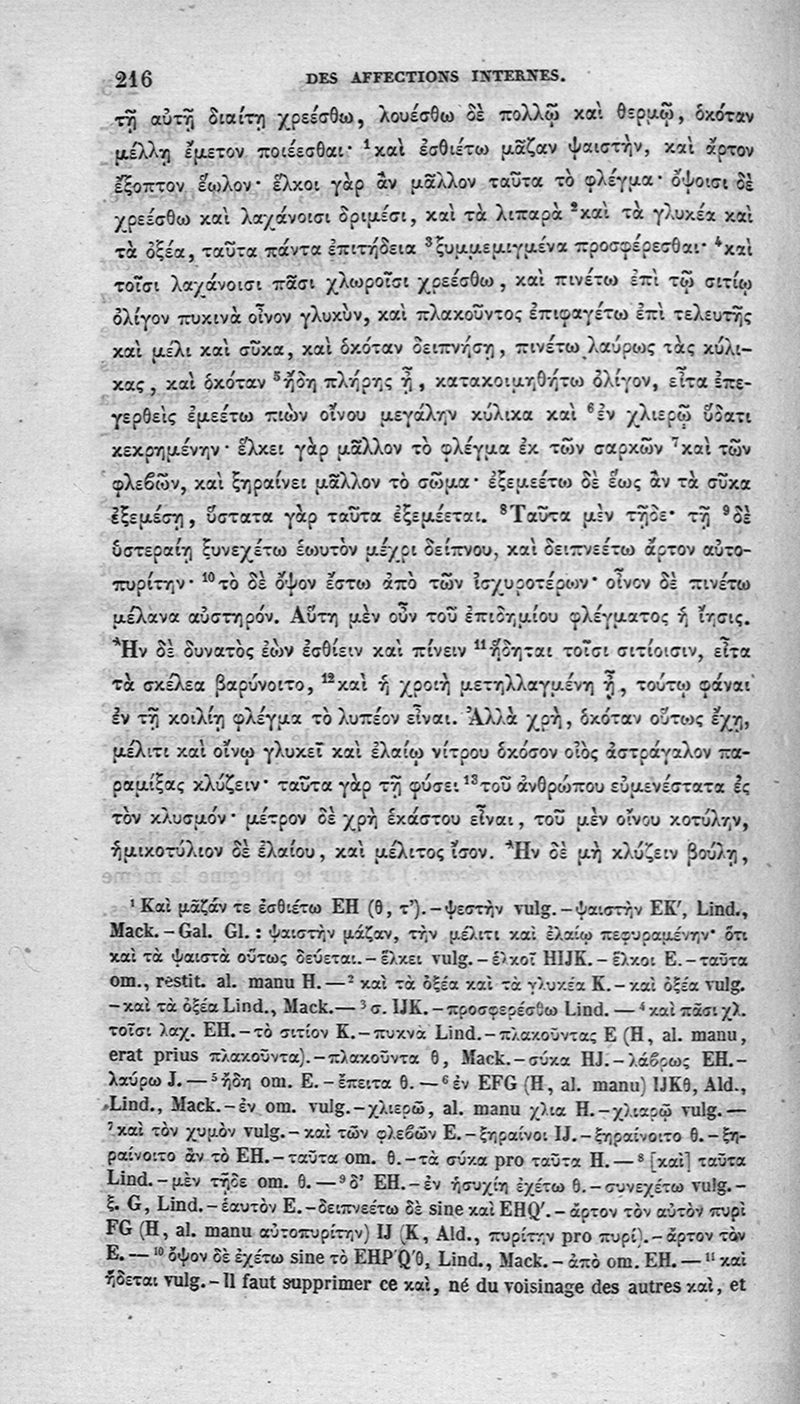 216 DES AFFECTIONS INTERNES.
τῇ αὐτῇ διαίτῃ χρεέσθω, λουέσθω δὲ πολλῷ καὶ θερμῷ, ὁκόταν
μέλλῃ ἔμετον ποιέεσθαι· ¹καὶ ἐσθιέτω μᾶζαν ψαιστὴν, καὶ ἄρτον
ἔξοπτον ἕωλον· ἕλκοι γὰρ ἂν μᾶλλον ταῦτα τὸ φλέγμα· ὄψοισι δὲ
χρεέσθω καὶ λαχάνοισι δριμέσι, καὶ τὰ λιπαρὰ ²καὶ τὰ γλυκέα καὶ
τὰ ὀξέα, ταῦτα πάντα ἐπιτήδεια ³ξυμμεμιγμένα προσφέρεσθαι· ⁴καὶ
τοῖσι λαχάνοισι πᾶσι χλωροῖσι χρεέσθω, καὶ πινέτω ἐπὶ τῷ σιτίῳ
ὀλίγον πυκινὰ οἶνον γλυκὺν, καὶ πλακοῦντος ἐπιφαγέτω ἐπὶ τελευτῆς
καὶ μέλι καὶ σῦκα, καὶ ὁκόταν δειπνήσῃ, πινέτω λαύρως τὰς κύλι-
κας, καὶ ὁκόταν ⁵ἤδη πλήρης ᾖ, κατακοιμηθήτω ὀλίγον, εἶτα ἐπε-
γερθεὶς ἐμεέτω πιὼν οἴνου μεγάλην κύλικα καὶ ⁶ἐν χλιερῷ ὕδατι
κεκρημένην· ἕλκει γὰρ μᾶλλον τὸ φλέγμα ἐκ τῶν σαρκῶν ⁷καὶ τῶν
φλεϐῶν, καὶ ξηραίνει μᾶλλον τὸ σῶμα· ἐξεμεέτω δὲ ἕως ἂν τὰ σῦκα
ἐξεμέσῃ, ὕστατα γὰρ ταῦτα ἐξεμέεται. ⁸Ταῦτα μὲν τῇδε· τῇ ⁹δὲ
ὑστεραίῃ ξυνεχέτω ἑωυτὸν μέχρι δείπνου, καὶ δειπνεέτω ἄρτον αὐτο-
πυρίτην· ¹⁰τὸ δὲ ὄψον ἔστω ἀπὸ τῶν ἰσχυροτέρων· οἶνον δὲ πινέτω
μέλανα αὐστηρόν. Αὕτη μὲν οὖν τοῦ ἐπιδημίου φλέγματος ἡ ἴησις.
Ἢν δὲ δυνατὸς ἐὼν ἐσθίειν καὶ πίνειν ¹¹ἥδηται τοῖσι σιτίοισιν, εἶτα
τὰ σκέλεα βαρύνοιτο, ¹²καὶ ἡ χροιὴ μετηλλαγμένη ᾖ, τούτῳ φάναι
ἐν τῇ κοιλίῃ φλέγμα τὸ λυπέον εἶναι. Ἀλλὰ χρὴ, ὁκόταν οὕτως ἔχῃ,
μέλιτι καὶ οἴνῳ γλυκεῖ καὶ ἐλαίῳ νίτρου ὁκόσον οἰὸς ἀστράγαλον πα-
ραμίξας κλύζειν· ταῦτα γὰρ τῇ φύσει ¹³τοῦ ἀνθρώπου εὐμενέστατα ἐς
τὸν κλυσμόν· μέτρον δὲ χρὴ ἑκάστου εἶναι, τοῦ μὲν οἴνου κοτύλην,
ἡμικοτύλιον δὲ ἐλαίου, καὶ μέλιτος ἴσον. Ἢν δὲ μὴ κλύζειν βούλῃ,
¹ Καὶ μᾶζάν τε ἐσθιέτω EH (θ, τ’). – ψεστὴν vulg. – ψαιστὴν EK′, Lind.,
Mack. – Gal. Gl. : ψαιστὴν μάζαν, τὴν μέλιτι καὶ ἐλαίῳ πεφυραμένην· ὅτι
καὶ τὰ ψαιστὰ οὕτως δεύεται. – ἕλκει vulg. – ἑλκοῖ HIJK. – ἕλκοι E. – ταῦτα
om., restit. al. manu H. — ² καὶ τὰ ὀξέα καὶ τὰ γλυκέα K. – καὶ ὀξέα vulg.
– καὶ τὰ ὀξέα Lind., Mack. — ³ σ. IJK. – προσφερέσθω Lind. — ⁴ καὶ πᾶσι χλ.
τοῖσι λαχ. EH. – τὸ σιτίον K. – πυκνὰ Lind. – πλακοῦντας E (H, al. manu,
erat prius πλακοῦντα). – πλακοῦντα θ, Mack. – σύκα HJ. – λάϐρως EH. –
λαύρω J. — ⁵ ἤδη om. E. – ἔπειτα θ. — ⁶ ἐν EFG (H, al. manu) IJKθ, Ald.,
Lind., Mack. – ἐν om. vulg. – χλιερῶ, al. manu χλια H. – χλιαρῷ vulg. —
⁷ καὶ τὸν χυμὸν vulg. – καὶ τῶν φλεϐῶν E. – ξηραίνοι IJ. – ξηραίνοιτο θ. – ξη-
ραίνοιτο ἂν τὸ EH. – ταῦτα om. θ. – τὰ σύκα pro ταῦτα H. — ⁸ [καὶ] ταῦτα
Lind. – μὲν τῇδε om. θ. — ⁹ δ’ EH. – ἐν ἡσυχίῃ ἐχέτω θ. – συνεχέτω vulg. –
ξ. G, Lind. – ἑαυτὸν E. – δειπνεέτω δὲ sine καὶ EHQ′. – ἄρτον τὸν αὐτὸν πυρὶ
FG (H, al. manu αὐτοπυρίτην) IJ (K, Ald., πυρίτην pro πυρί). – ἄρτον τὸν
E. — ¹⁰ ὄψον δὲ ἐχέτω sine τὸ EHP′Q′θ, Lind., Mack. – ἀπὸ om. EH. — ¹¹ καὶ
ἥδεται vulg. – Il faut supprimer ce καὶ, né du voisinage des autres καὶ, et